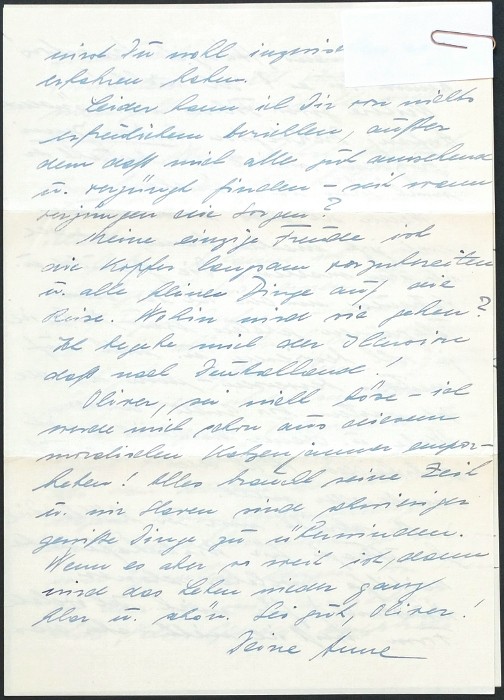 wirst Du wohl
erfahren haben.
Leider kann ich Dir von nichts
erfreulichem berichten, außer
dem daß mich alle gut aussehend
u. verjüngt finden – seit wann
verjüngen die Sorgen?
Meine einzige Freude ist
die Koffer langsam vorzubereiten
u. alle kleinen Dinge auf die
Reise. Wohin wird sie gehen?
Ich begebe mich der Illusion
daß nach Deutschland!
Oliver, sei nicht böse – ich
werde mich schon aus diesem
moralischen Katzenjammer empor-
heben! Alles braucht seine Zeit
u. mir sind schwieriger
gewisse Dinge zu überwinden.
Wenn es aber so weit ist, dann
wird das Leben wieder ganz
klar u. schön. Sei gut, Oliver!
Deine Anne